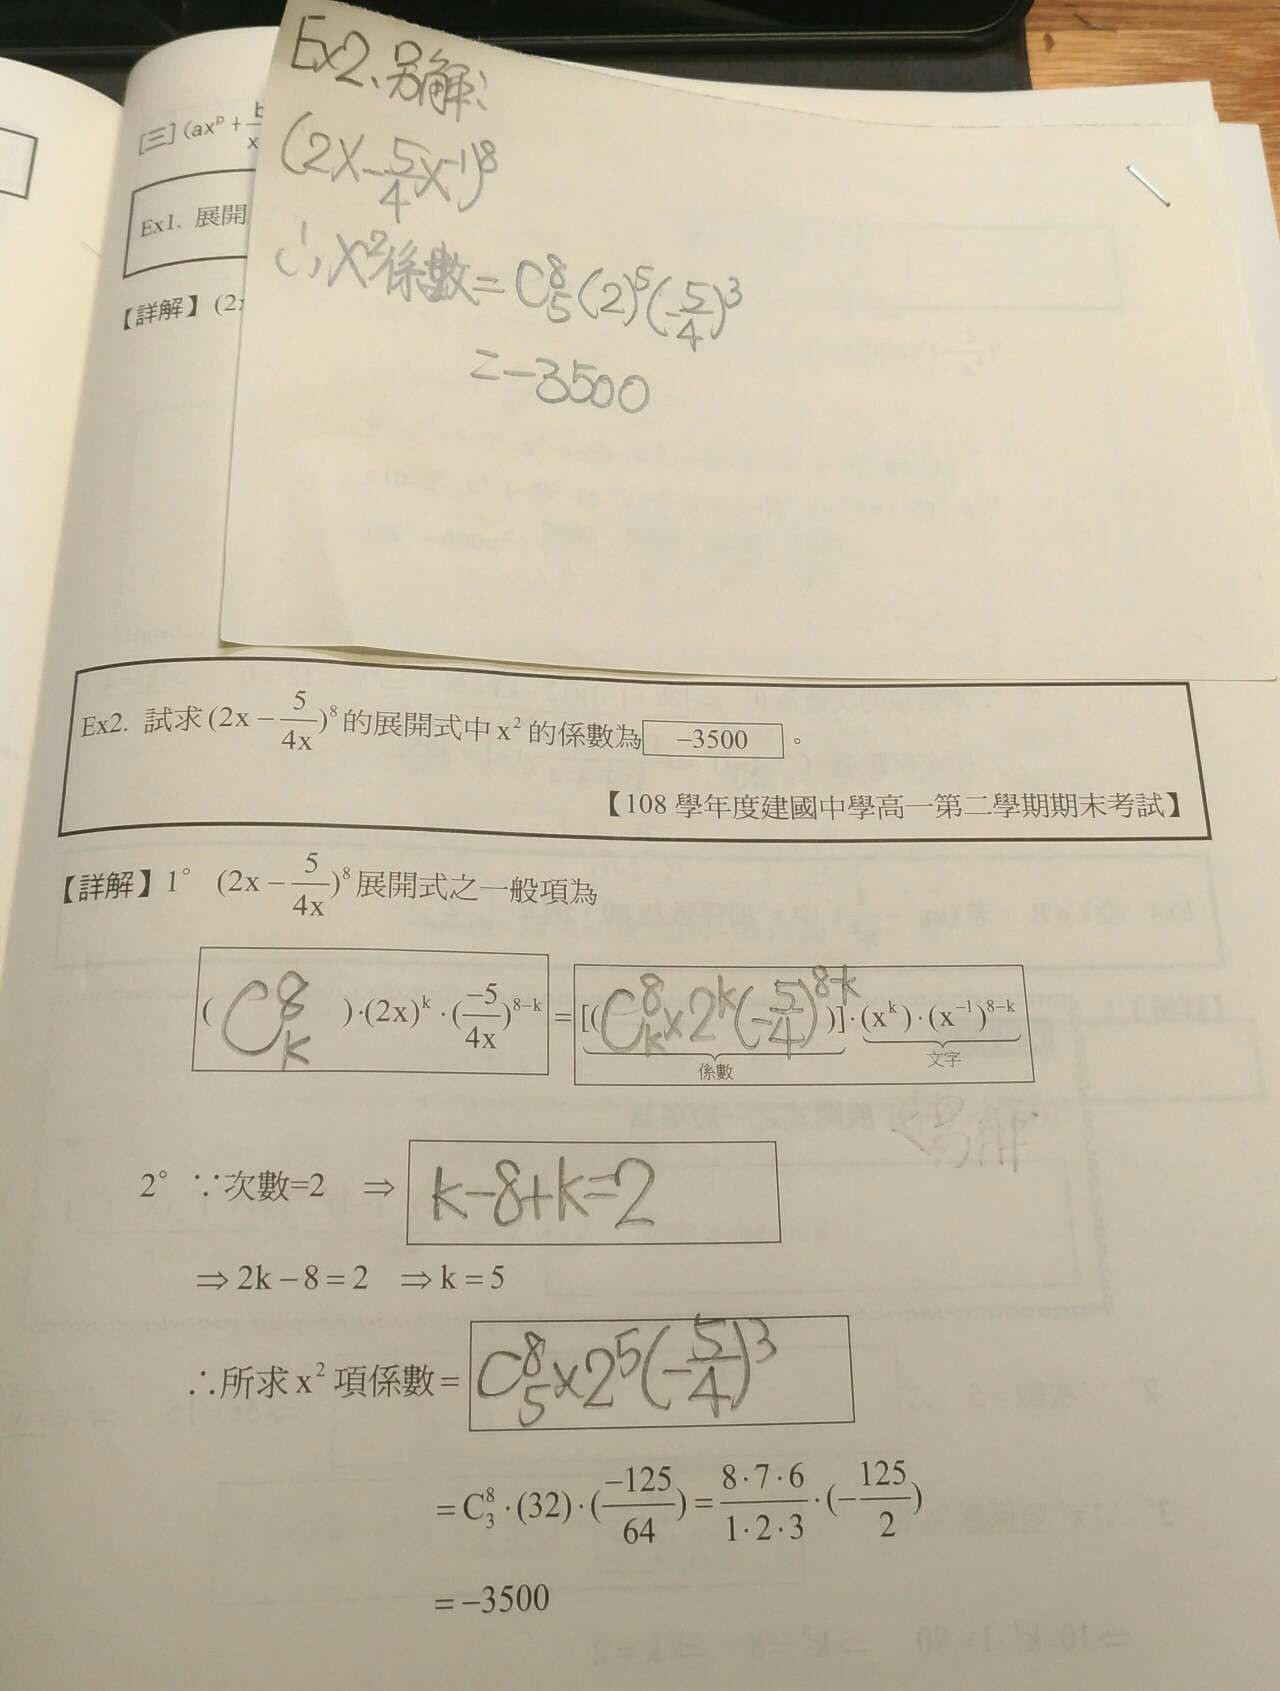 Ex2、另解:
(2x-5/4x⁻¹)⁸
∴x²係數=C⁸₅(2)⁵(-5/4)³
=-3500
[三](axᵖ+b/x
Ex1. 展開
【詳解】(2x
Ex2. 試求(2x−5/4x)⁸的展開式中x²的係數為 −3500 。
【108學年度建國中學高一第二學期期末考試】
【詳解】1° (2x−5/4x)⁸展開式之一般項為
( C⁸ₖ )·(2x)ᵏ·(−5/4x)⁸⁻ᵏ=[(C⁸ₖ×2ᵏ(-5/4)⁸⁻ᵏ)]·(xᵏ)·(x⁻¹)⁸⁻ᵏ
係數 文字
2° ∵次數=2 ⇒ k-8+k=2
⇒2k−8=2 ⇒k=5
∴所求x²項係數= C⁸₅×2⁵(-5/4)³
=C⁸₃·(32)·(−125/64)=8·7·6/1·2·3·(−125/2)
=−3500